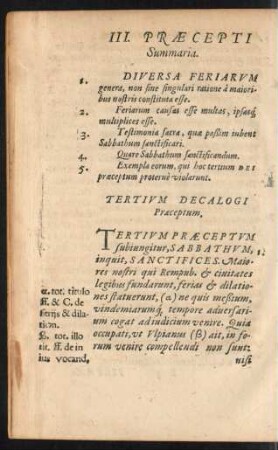 III. PRÆCEPTI
Summaria.
1. DIVERSA FERIARVM
genera, non sine singulari ratione à maiori-
bus nostris constituta esse.
2. Feriarum causas esse multas, ipsasq;
multiplices esse.
3. Testimonia sacra, quæ passim iubent
Sabbathum sanctificari.
4. Quare Sabbathum sanctificandum.
5. Exempla eorum, qui hoc tertium DEI
præceptum proteruè violarunt.
TERTIVM DECALOGI
Præceptum,
TERTIVM PRÆCEPTVM
subiungitur, SABBATHVM,
inquit, SANCTIFICES. Maio-
res nostri qui Rempub. & ciuitates
legibus fundarunt, ferias & dilatio-
nes statuerunt, (α) ne quis messium,
vindemiarumq; tempore aduersari-
um cogat ad iudicium venire. Quia
occupati, vt Vlpianus (β) ait, in fo-
rum venire compellendi non sunt:
nisi
α. tot. titulo
ff. & C. de
ferijs & dila-
tion.
β. tot. illo
tit. ff. de in
ius vocand,